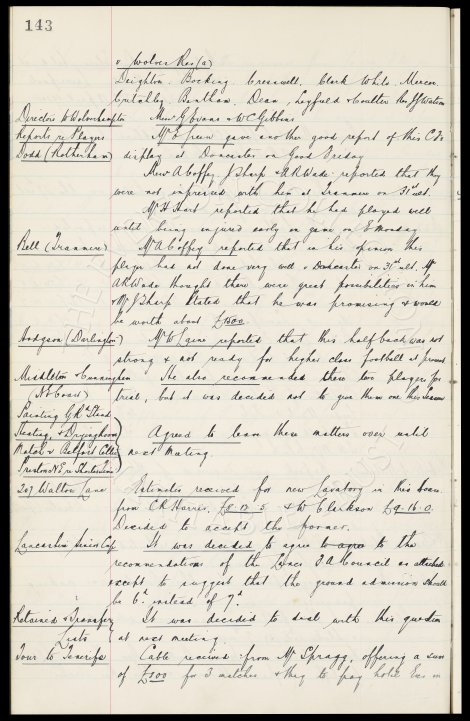 143
v Wolves Res (a)
Deighton. Bocking. Cresswell. Clark White. Mercer
Critchley. Bentham. Dean, Leyfield & Coulter
Directors to Wolverhampton Messrs G Evans & W C Gibbins
Reports re Players Mr E Green gave another good report of this C.F's
Dodd (Rotherham) display at Doncaster on Good Friday
Messrs A Coffey J Sharp & A R Wade reported that they
were not impressed with him at Tranmere on 31st ult.
Mr H Hart reported that he had played well
until being injured early in game on E Monday
Bell (Tranmere) Mr A Coffey reported that in his opinion this
player had not done very well v Doncaster on 31st ult. Mr
A R Wade thought there were great possibilities in him
& Mr J Sharp stated that he was promising & would
be worth about £1500
Hodgson (Darlington) Mr W reported that this half back was not
strong & not ready for higher class football at present
Middleton & Cunningham He also recommended these two players for
trial, but it was decided not to give them one this season
Painting G.R. Stand
Heating, & Drying Room
Matches Belfast Celtic Agreed to leave these matters over until
Preston N.E. re next meeting.
207 Walton Lane Estimates received for new Lavatory in this house
from C R Harris, £8.12.5 & W Clarkson £9.16.0.
Decided to accept the former.
Lancashire Senior Cup It was decided to agree to the
recommendations of the Lancs F A Council as attached
except to suggest that the ground admission should
be 6d instead of 7d.
Retained & Transfer It was decided to deal with this question
Lists at next meeting.
Tour to Tenerife Cable received from Mr Spragg, offering a sum
of £500 for 3 matches & they to pay hotel Exs in